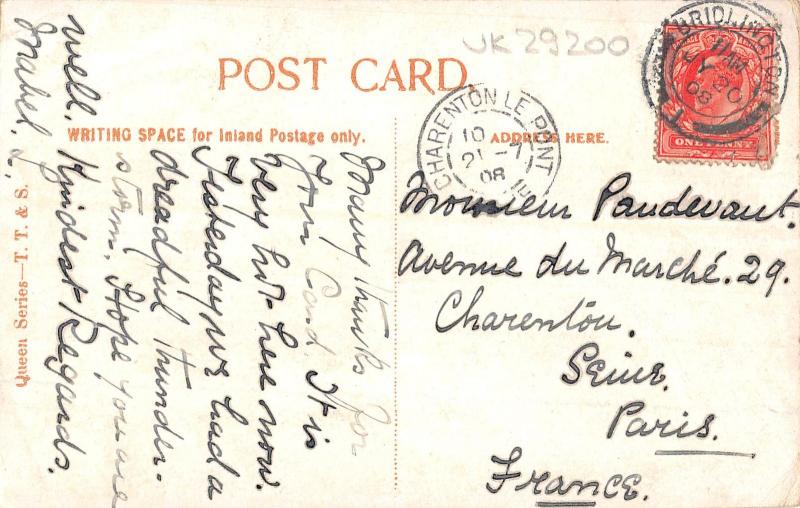 UK 29200
POST CARD.
WRITING SPACE for Inland Postage only.
ADDRESS HERE.
Many thanks for
your Card. It is
very hot here now.
Yesterday we had a
dreadful thunder-
storm. Hope you are
well. Kindest Regards.
Mabel.
Queen Series—T. T. & S.
CHARENTON LE PONT
10
21 - 7
08
BRIDLINGTON
11 AM
JY 20
08
ONE PENNY
Monsieur Paudevant.
Avenue du Marché. 29.
Charenton.
Seine.
Paris.
France.